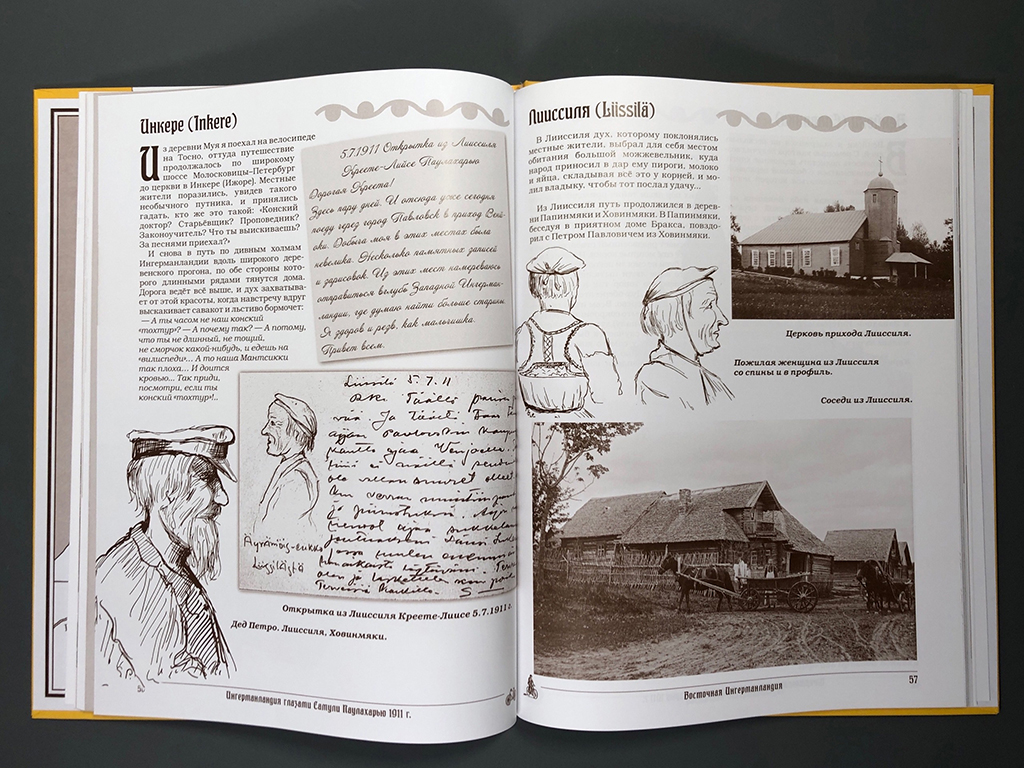 Инкере (Inkere)
Из деревни Муя я поехал на велосипеде
на Тосно, оттуда путешествие
продолжалось по широкому
шоссе Молосковицы-Петербург
до церкви в Инкере (Ижоре). Местные
жители поразились, увидев такого
необычного путника, и принялись
гадать, кто же это такой: «Конский
доктор? Старьёвщик? Проповедник?
Законоучитель? Что ты выискиваешь?
За песнями приехал?»
И снова в путь по дивным холмам
Ингерманландии вдоль широкого дере-
венского прогона, по обе стороны кото-
рого длинными рядами тянутся дома.
Дорога ведёт всё выше, и дух захватыва-
ет от этой красоты, когда навстречу вдруг
выскакивает савакот и льстиво бормочет:
— А ты часом не наш конский
«тохтур»? — А почему так? — А потому,
что ты не длинный, не тощий,
не сморчок какой-нибудь, и едешь на
«вилиспеди»... А то наша Мантсикки
так плоха... И доится
кровью... Так приди,
посмотри, если ты
конский «тохтур»!..
5.7.1911 Открытка из Лииссиля
Креете-Лийсе Паулахарью
Дорогая Креета!
Здесь пару дней. И отсюда уже сегодня
поеду через город Павловск в приход Вени-
оки. Добыча моя в этих местах была
невелика. Несколько памятных записей
и зарисовок. Из этих мест намереваюсь
отправиться вглубь Западной Ингерман-
ландии, где думаю найти больше старины.
Я здоров и резв, как мальчишка.
Привет всем.
Liissilä 5.7.11
Äyrämöis-eukko
Liissilästä
Открытка из Лииссиля Креете-Лиисе 5.7.1911 г.
Дед Петро. Лииссиля, Ховинмяки.
Ингерманландия глазами Самули Паулахарью 1911 г.
Лииссиля (Liissilä)
В Лииссиля дух, которому поклонялись
местные жители, выбрал для себя местом
обитания большой можжевельник, куда
народ приносил в дар ему пироги, молоко
и яйца, складывая всё это у корней, и мо-
лил владыку, чтобы тот послал удачу...
Из Лииссиля путь продолжился в дерев-
ни Папинмяки и Ховинмяки. В Папинмяки,
беседуя в приятном доме Бракса, повздо-
рил с Петром Павловичем из Ховинмяки.
Церковь прихода Лииссиля.
Пожилая женщина из Лииссиля
со спины и в профиль.
Соседи из Лииссиля.
Восточная Ингерманландия
57